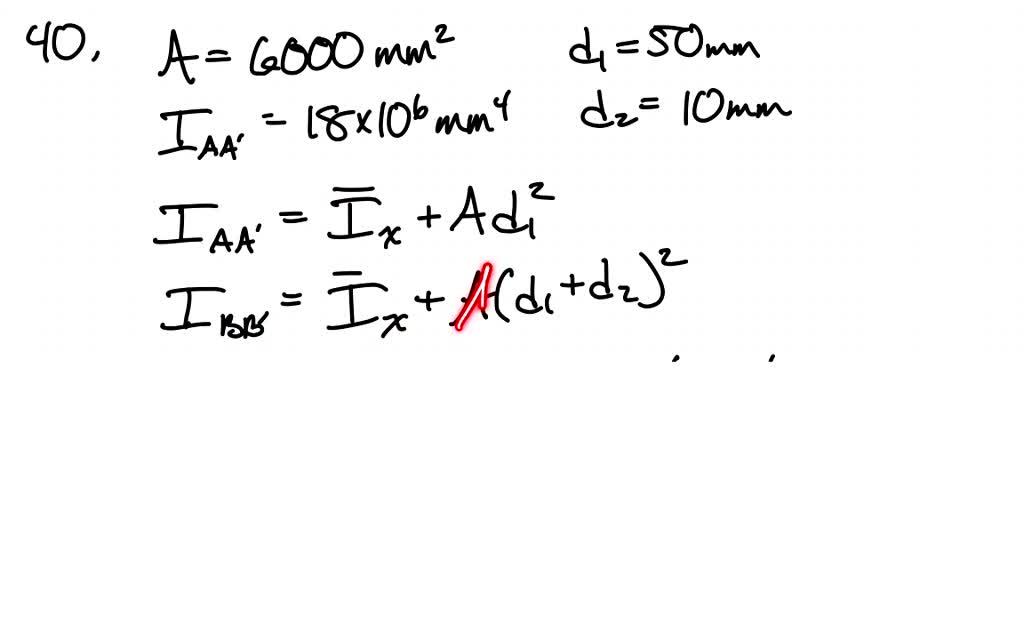 40, A = 6000 mm² d₁ = 50mm
I_AA' = 18×10⁶ mm⁴ d₂ = 10mm
I_AA' = Ī_x + Ad₁²
I_BB' = Ī_x + A(d₁+d₂)²